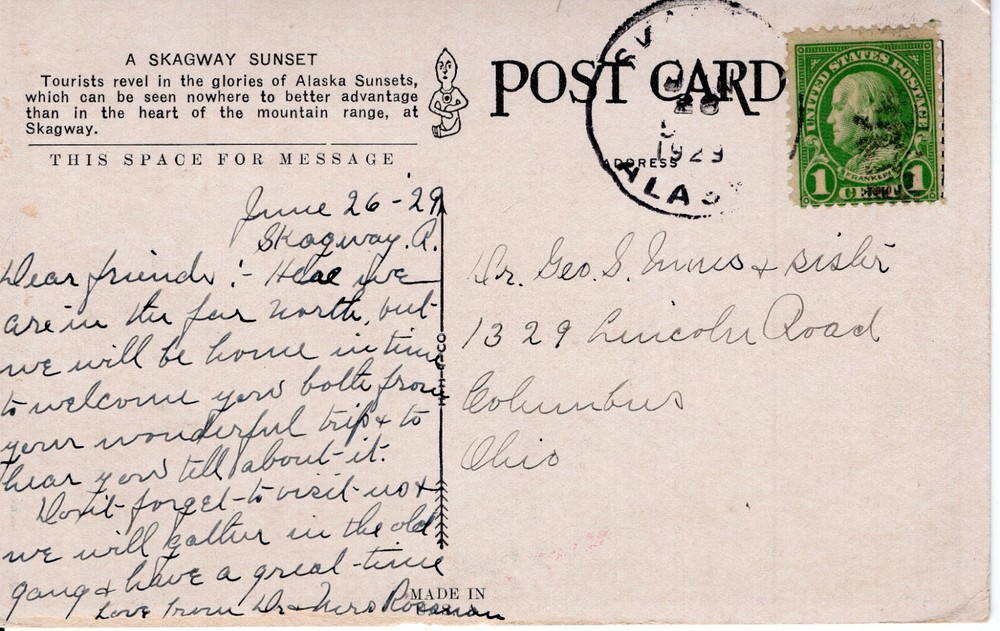 A SKAGWAY SUNSET
Tourists revel in the glories of Alaska Sunsets,
which can be seen nowhere to better advantage
than in the heart of the mountain range, at
Skagway.
THIS SPACE FOR MESSAGE
June 26-'29
Skagway. A.
Dear friends :- Here we
are in the far North, but
we will be home in time
to welcome you both from
your wonderful trip & to
hear you tell about it.
Don't forget to visit us &
we will gather in the old
gang & have a great time
Love from Dr & Mrs Rossman
POST CARD
ADDRESS
1929
ALAS
UNITED STATES POSTAGE
FRANKLIN
1 1
Dr. Geo. S. Innis & sister
1329 Lincoln Road
Columbus
Ohio
MADE IN